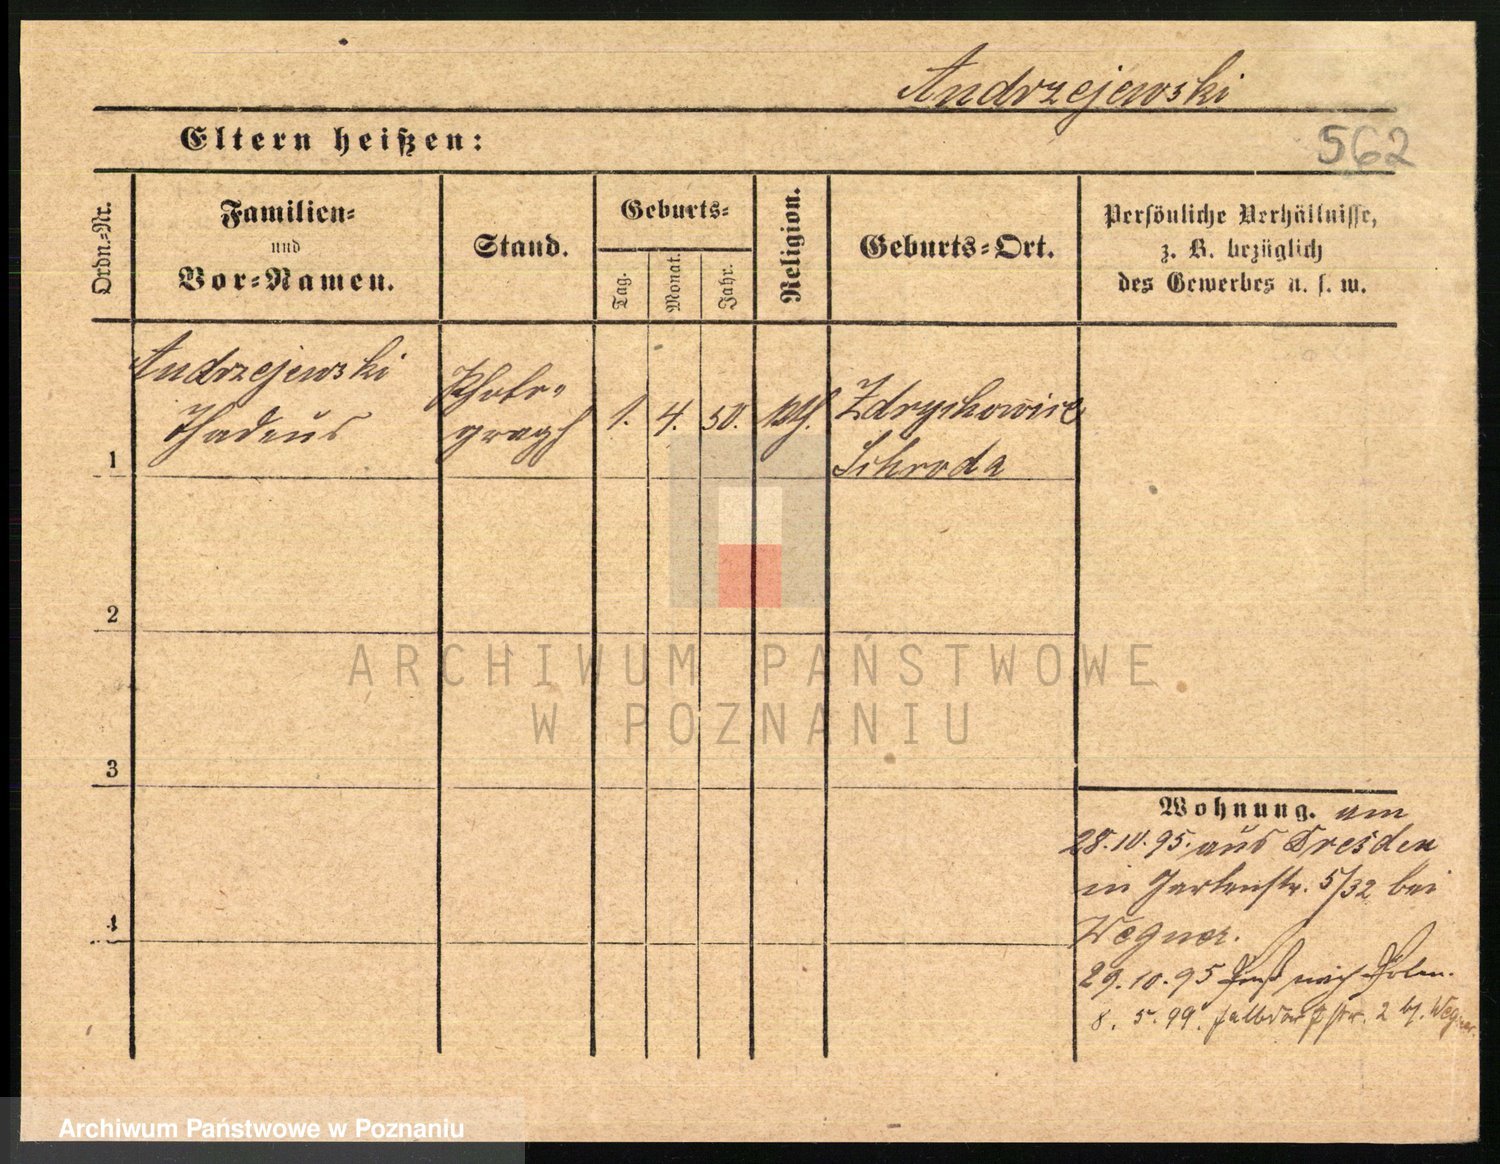 Andrzejewski
Eltern heißen:
562
Ordn.-Nr.
Familien-
und
Vor-Namen.
Stand.
Geburts-
Tag.
Monat.
Jahr.
Religion.
Geburts-Ort.
Persönliche Verhältnisse,
z. B. bezüglich
des Gewerbes u. s. w.
Andrzejewski
Thadeus
Photo-
graph
1. 4. 50. kth.
Zdrychowice
Schroda
1
2
3
4
Wohnung. am
28.10.95. aus Dresden
in Gartenstr. 5/32 bei
Wegner.
29.10.95 nach Polen.
8. 5. 99. str. 2 bj. Wegner.
ARCHIWUM PAŃSTWOWE
W POZNANIU
Archiwum Państwowe w Poznaniu